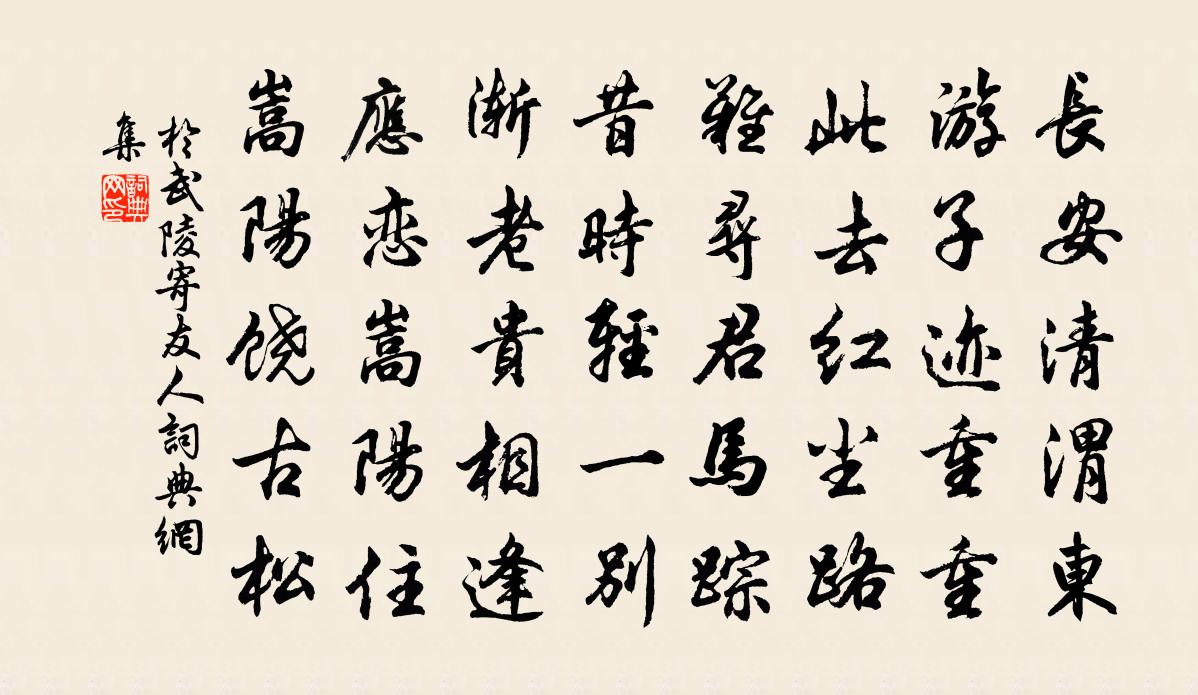 長安清渭東
游子迹重重
此去紅尘路
難尋君馬踪
昔時輕一别
漸老貴相逢
應恋嵩陽住
嵩陽饶古松
於武陵寄友人詞典網
集
詞典網印